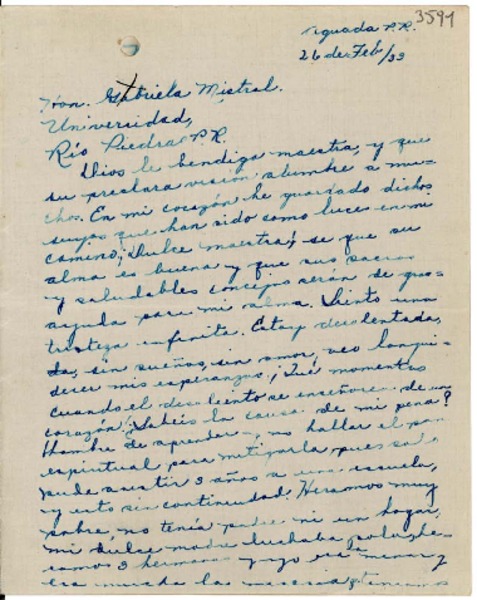 3591
Aguada P.R.
26 de Feb/33
Hon. Gabriela Mistral.
Universidad,
Río Piedras P.R.
Dios le bendiga maestra, y que
su preclara visión alumbre a mu-
chos. En mi corazón he guardado dichos
suyos que han sido como luce en mi
camino; ¡Dulce maestra! se que su
alma es buena y que sus sacros
y saludables consejos serán de gran
ayuda para mi alma. Siento una
tristeza infinita. Estoy desalentada,
sin sueños, sin amor, veo langui-
decer mis esperanzas; ¡Qué momentos
cuando el desaliento se enseñorea de un
corazón! ¿Sabéis la causa de mi pena?
Hambre de aprender y no hallar el pan
espiritual para mitigarla pues solo
pude asistir 3 años a una escuela,
y esto sin continuidad. Heramos muy
pobre, no tenía padre ni un hogar,
mi dulce madre luchaba sola; he-
ramos 3 hermanos y yo era la menor y
era mucha la miseria y teníamos